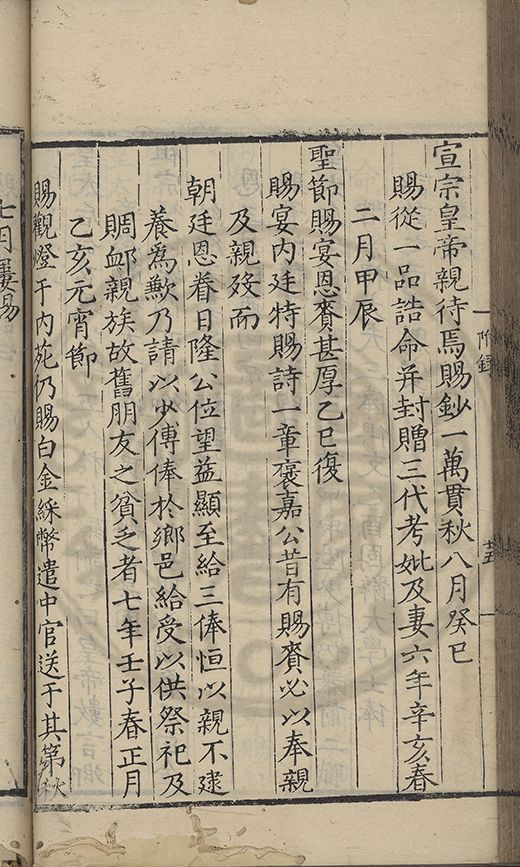 附録
廿五
宣宗皇帝親待焉賜鈔一萬貫秋八月癸巳
賜從一品誥命并封贈三代考妣及妻六年辛亥春
二月甲辰
聖節賜宴恩賚甚厚乙巳復
賜宴内廷特賜詩一章褒嘉公昔有賜賚必以奉親
及親歿而
朝廷恩眷日隆公位望益顯至給三俸恒以親不逮
養爲歉乃請以少傅俸於鄉邑給受以供祭祀及
賙卹親族故舊朋友之貧乏者七年壬子春正月
乙亥元宵節
賜觀燈于内苑仍賜白金綵幣遣中官送于其第秋